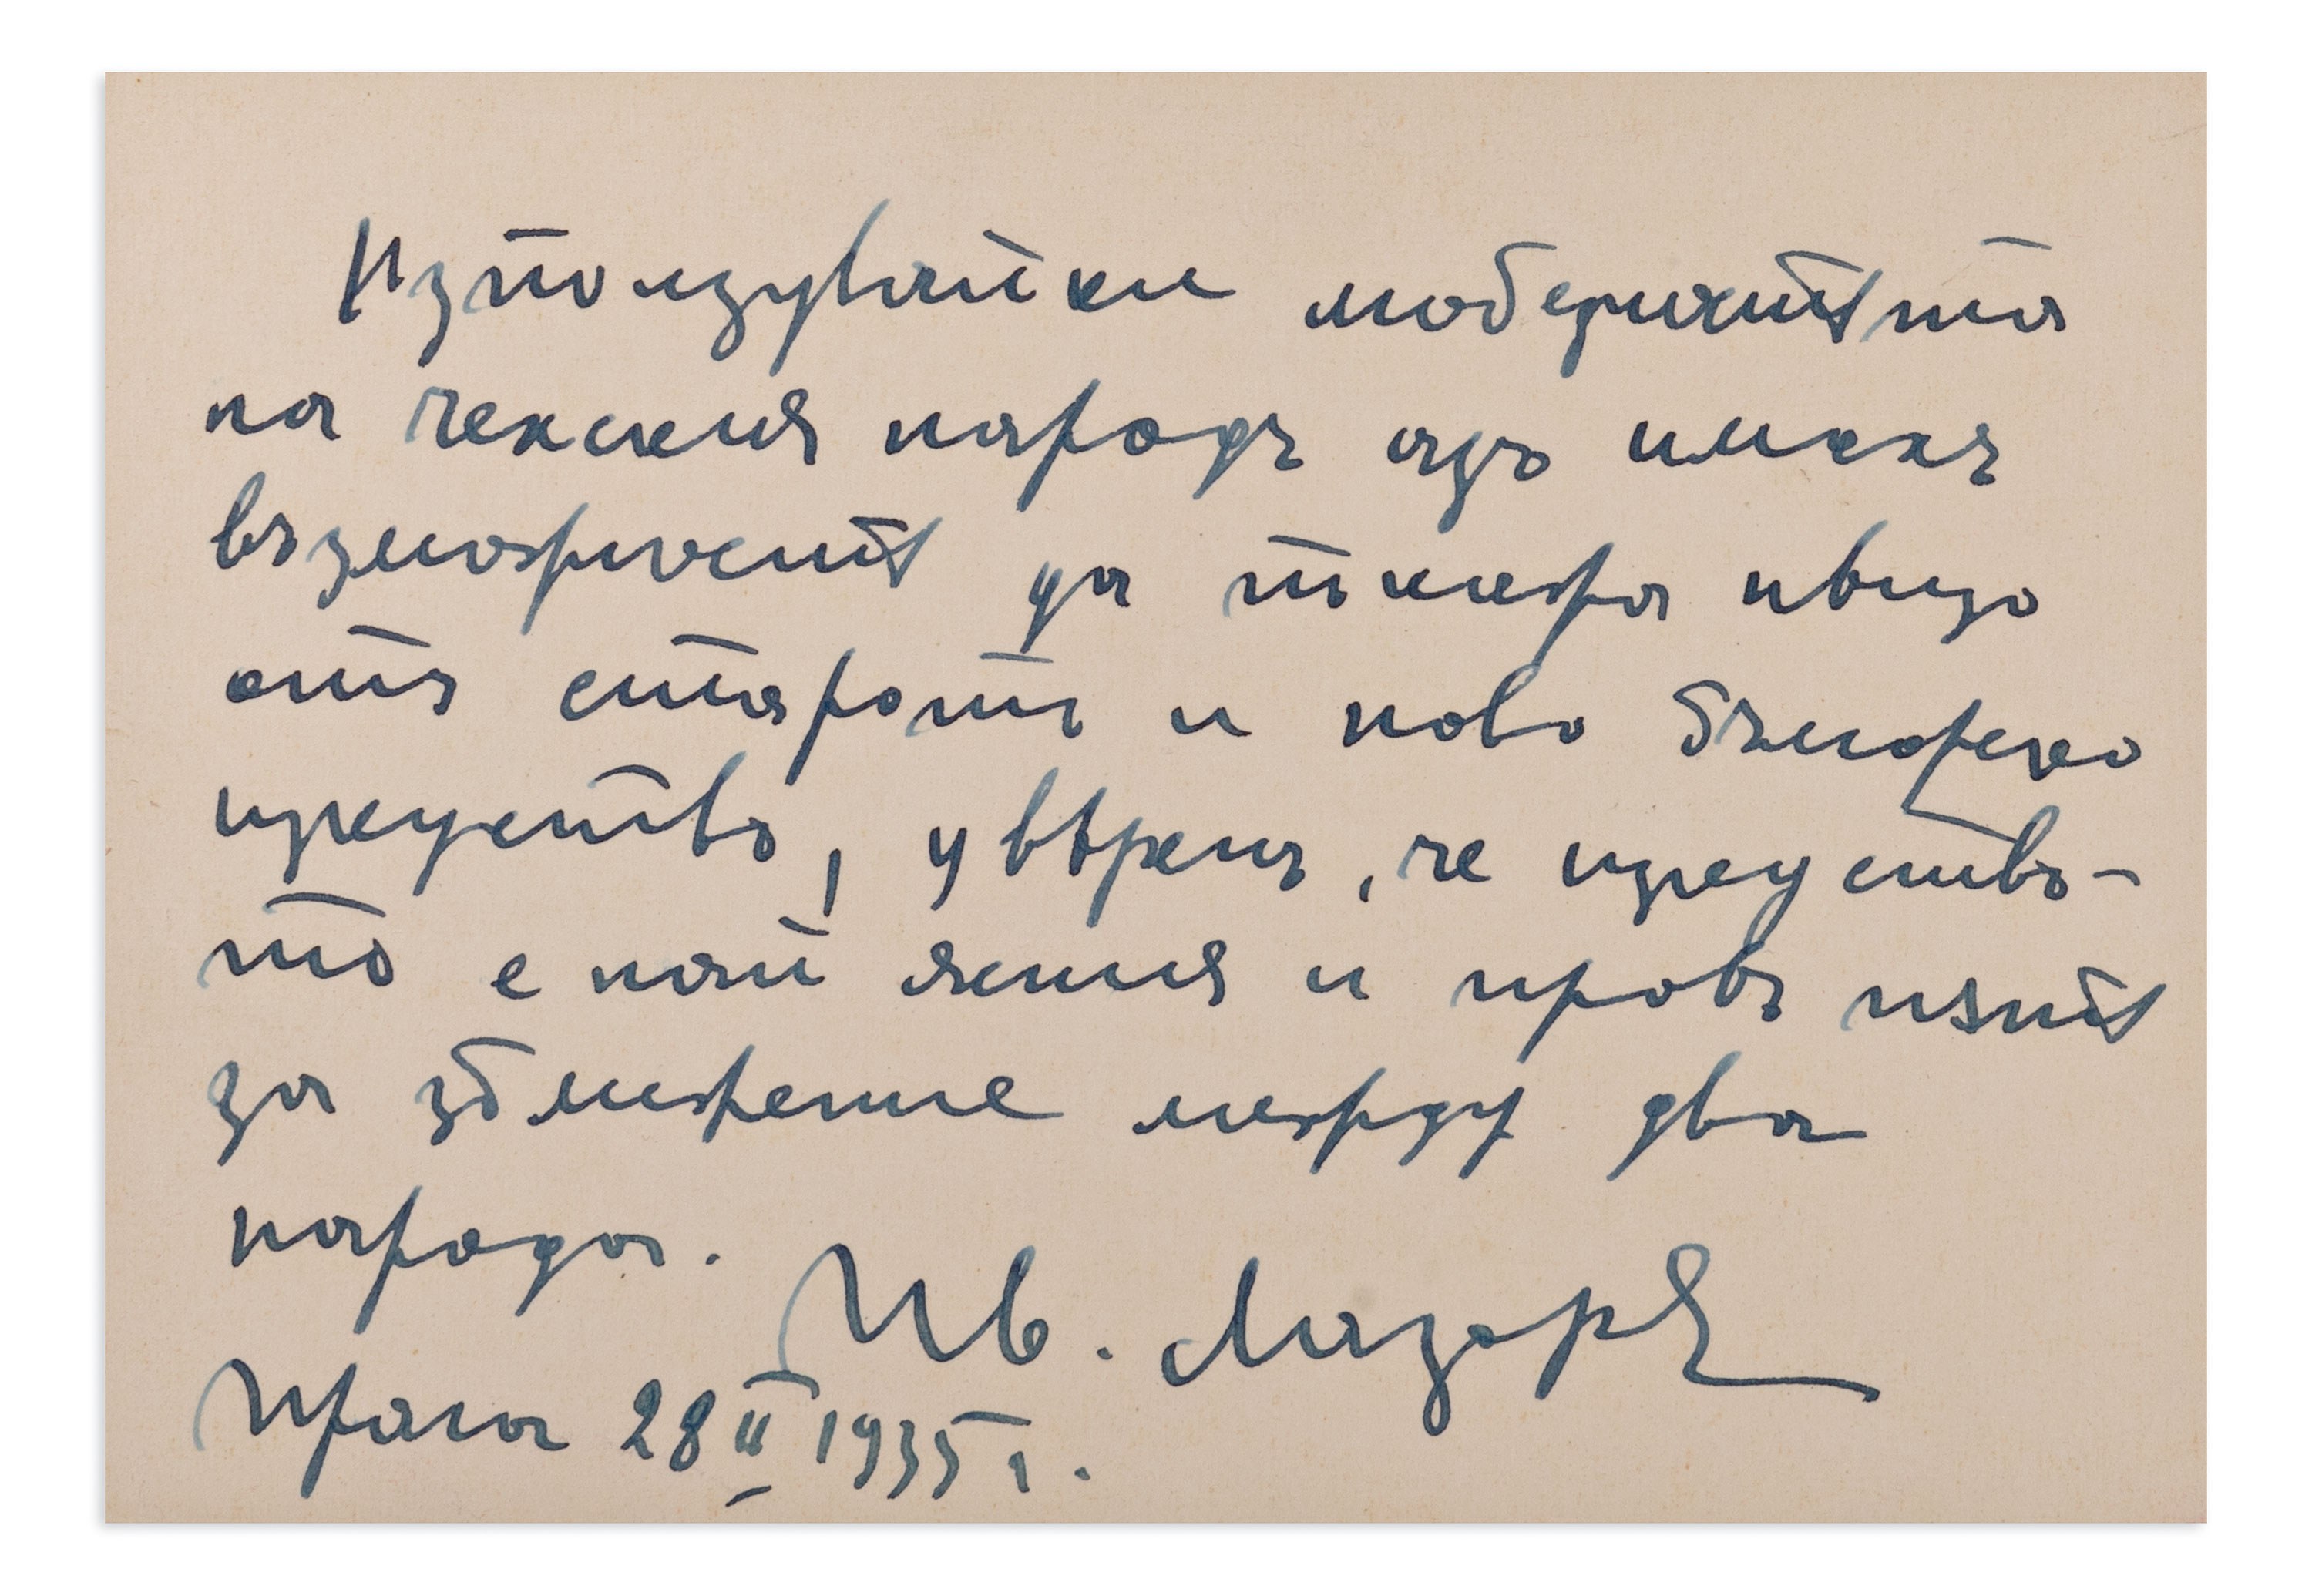 Използувайки
на чехския народъ азъ имахъ
възможность да
отъ старото и ново българско
изкуство, увѣренъ, че изкуство-
то е най ясния и правъ пѫть
за зближение между два
народа. Ив. Лазаров
Прага 28 II 1935 г.